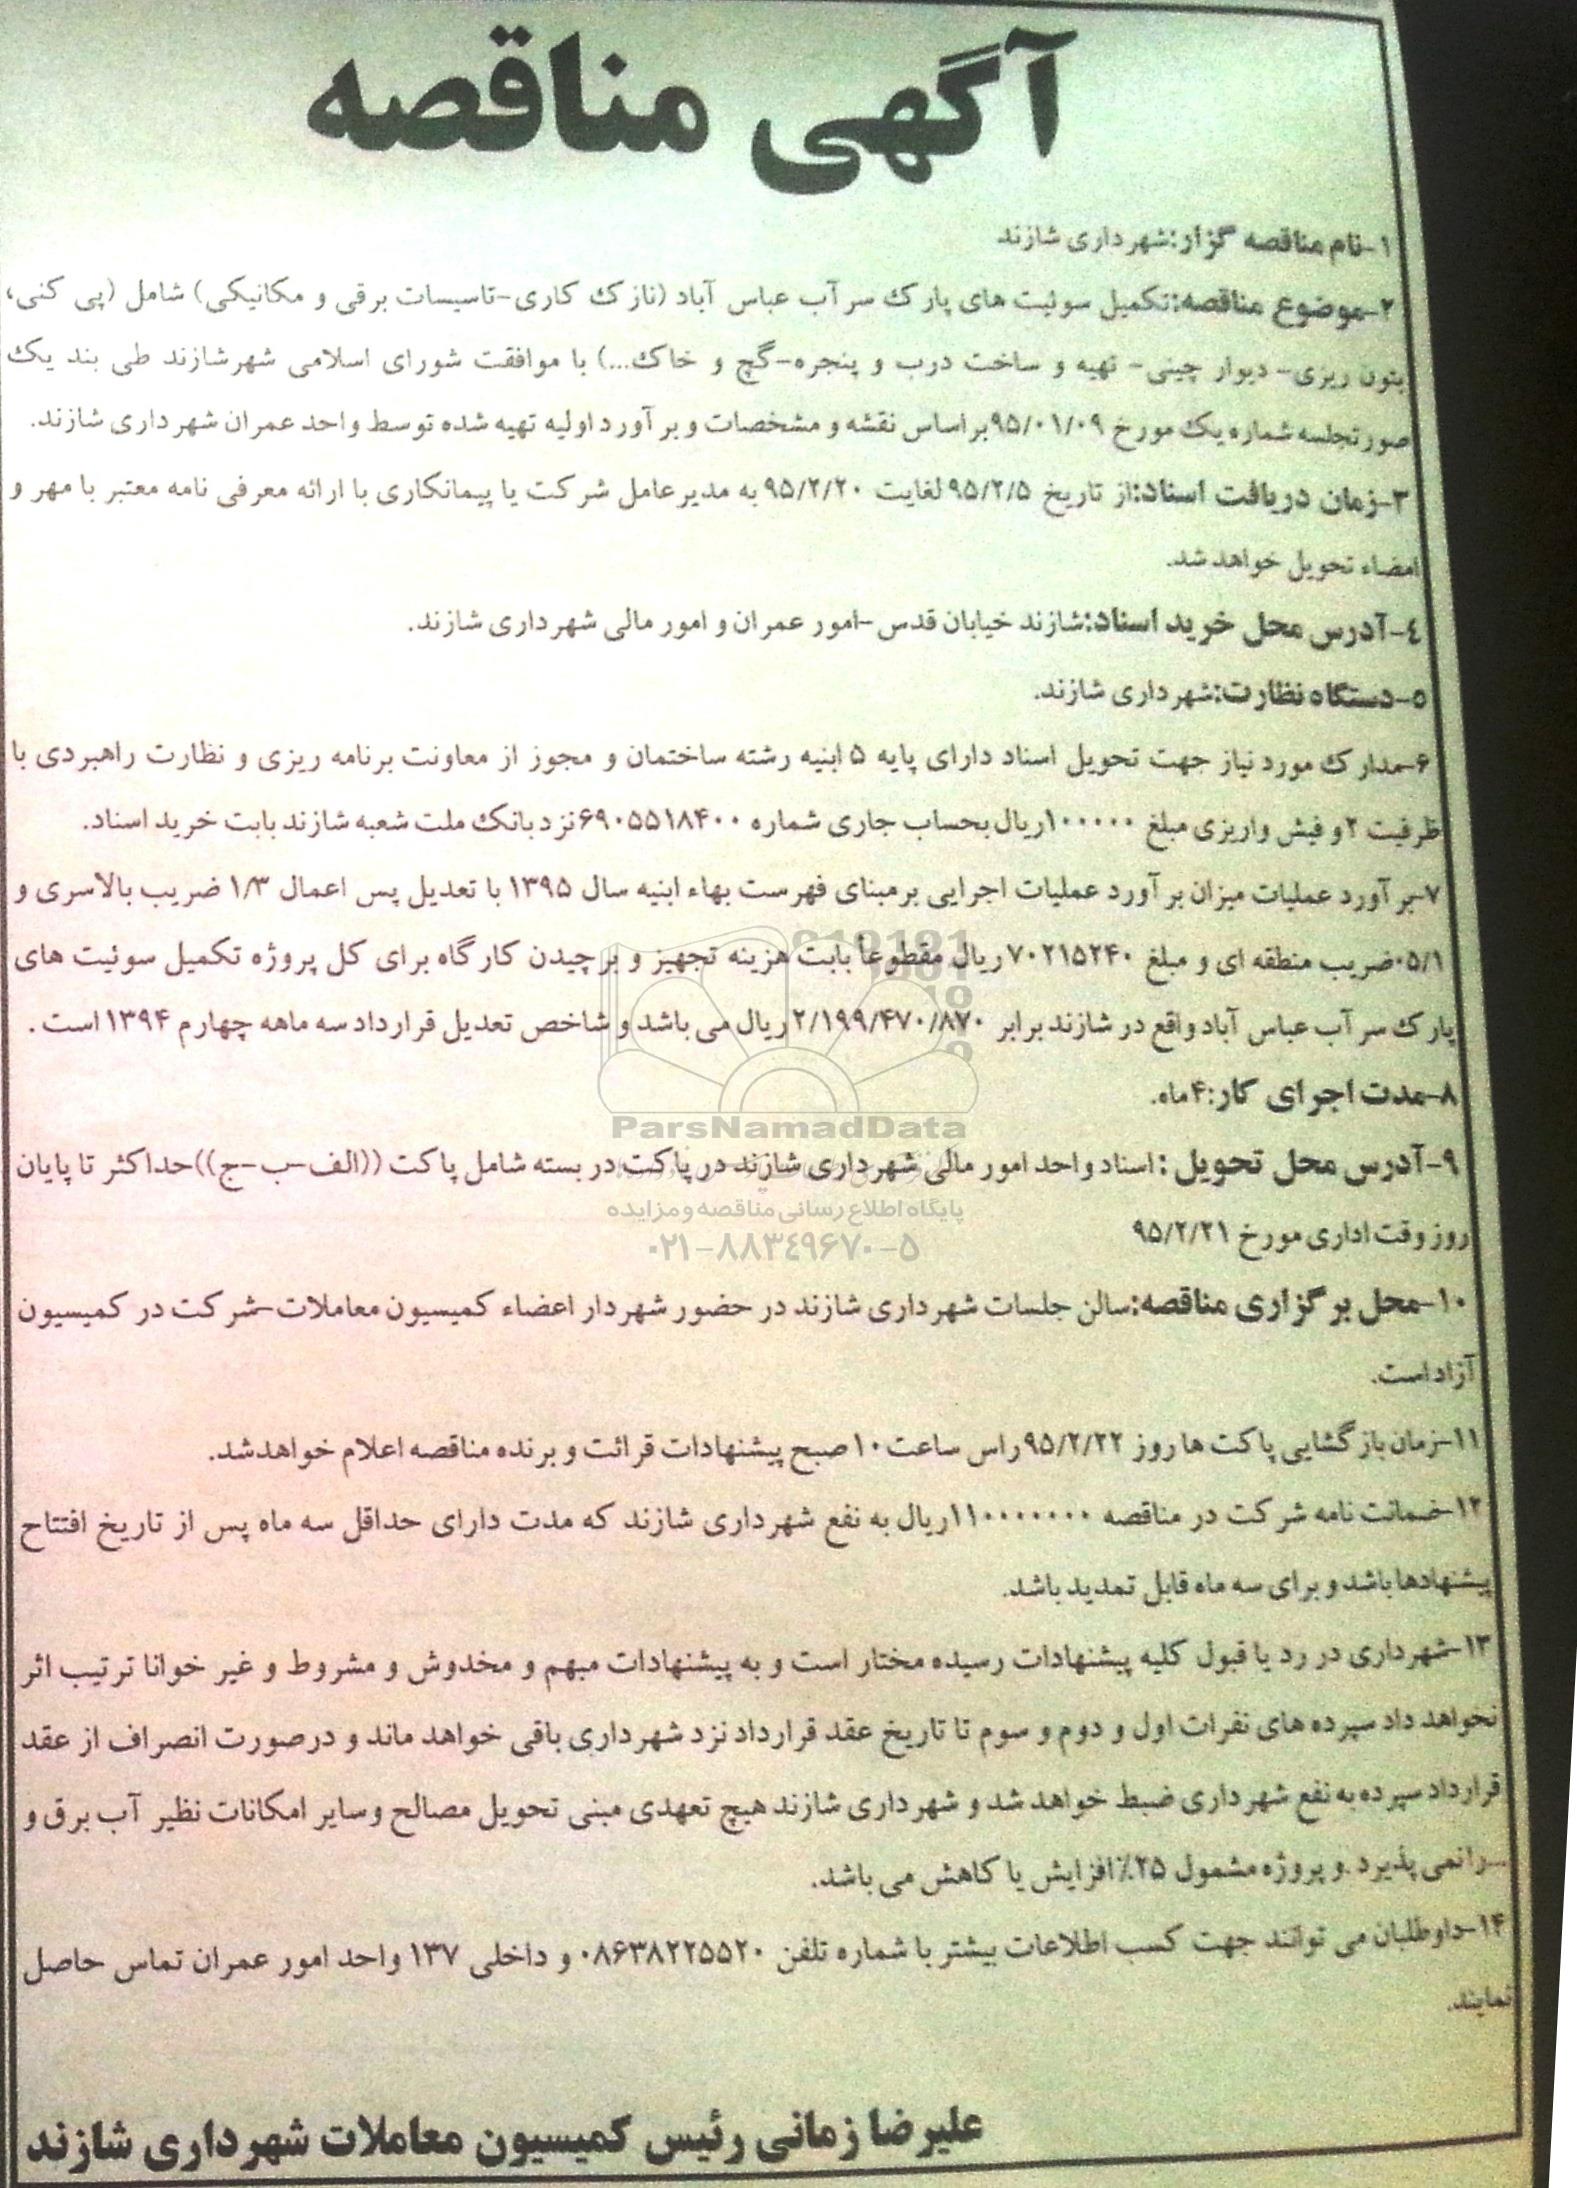 آگهی مناقصه
۱-نام مناقصه گزار:شهرداری شازند
۲-موضوع مناقصه:تکمیل سوئیت های پارک سرآب عباس آباد (نازک کاری-تاسیسات برقی و مکانیکی) شامل (پی کنی،
بتون ریزی- دیوار چینی- تهیه و ساخت درب و پنجره-گچ و خاک...) با موافقت شورای اسلامی شهرشازند طی بند یک
صورتجلسه شماره یک مورخ ۹۵/۰۱/۰۹براساس نقشه و مشخصات و برآورد اولیه تهیه شده توسط واحد عمران شهرداری شازند.
۳-زمان دریافت اسناد:از تاریخ ۹۵/۲/۵لغایت ۹۵/۲/۲۰به مدیرعامل شرکت یا پیمانکاری با ارائه معرفی نامه معتبر با مهر و
امضاء تحویل خواهد شد.
٤-آدرس محل خرید اسناد:شازند خیابان قدس-امور عمران و امور مالی شهرداری شازند.
۵-دستگاه نظارت:شهرداری شازند.
۶-مدارک مورد نیاز جهت تحویل اسناد دارای پایه ۵ ابنیه رشته ساختمان و مجوز از معاونت برنامه ریزی و نظارت راهبردی با
ظرفیت ۲و فیش واریزی مبلغ ۱۰۰۰۰۰ریال بحساب جاری شماره ۶۹۰۵۵۱۸۴۰۰نزد بانک ملت شعبه شازند بابت خرید اسناد.
۷-برآورد عملیات میزان برآورد عملیات اجرایی برمبنای فهرست بهاء ابنیه سال ۱۳۹۵ با تعدیل پس اعمال ۱/۳ ضریب بالاسری و
۰۵/۱ضریب منطقه ای و مبلغ ۷۰۲۱۵۲۴۰ریال مقطوعاً بابت هزینه تجهیز و برچیدن کارگاه برای کل پروژه تکمیل سوئیت های
پارک سرآب عباس آباد واقع در شازند برابر ۲/۱۹۹/۴۷۰/۸۷۰ریال می باشد و شاخص تعدیل قرارداد سه ماهه چهارم ۱۳۹۴است .
۸-مدت اجرای کار:۴ماه.
ParsNamadData
۹-آدرس محل تحویل :اسناد واحد امور مالی شهرداری شازند در پاکت در بسته شامل پاکت ((الف-ب-ج))حداکثر تا پایان
پایگاه اطلاع رسانی مناقصه و مزایده
روز وقت اداری مورخ ۹۵/۲/۲۱
۰۲۱-۸۸۳۴۹۶۷۰-۵
۱۰-محل برگزاری مناقصه:سالن جلسات شهرداری شازند در حضور شهردار اعضاء کمیسیون معاملات-شرکت در کمیسیون
آزاد است.
۱۱-زمان بازگشایی پاکت ها روز ۹۵/۲/۲۲راس ساعت۱۰صبح پیشنهادات قرائت و برنده مناقصه اعلام خواهدشد.
۱۲-ضمانت نامه شرکت در مناقصه ۱۱۰۰۰۰۰۰۰ریال به نفع شهرداری شازند که مدت دارای حداقل سه ماه پس از تاریخ افتتاح
پیشنهادها باشد و برای سه ماه قابل تمدید باشد.
۱۳-شهرداری در رد یا قبول کلیه پیشنهادات رسیده مختار است و به پیشنهادات مبهم و مخدوش و مشروط و غیر خوانا ترتیب اثر
نخواهد داد سپرده های نفرات اول و دوم و سوم تا تاریخ عقد قرارداد نزد شهرداری باقی خواهد ماند و درصورت انصراف از عقد
قرارداد سپرده به نفع شهرداری ضبط خواهد شد و شهرداری شازند هیچ تعهدی مبنی تحویل مصالح و سایر امکانات نظیر آب برق و
...را نمی پذیرد .و پروژه مشمول ۲۵٪افزایش یا کاهش می باشد.
۱۴-داوطلبان می توانند جهت کسب اطلاعات بیشتر با شماره تلفن ۰۸۶۳۸۲۲۵۵۲۰ و داخلی ۱۳۷ واحد امور عمران تماس حاصل
نمایند.
علیرضا زمانی رئیس کمیسیون معاملات شهرداری شازند